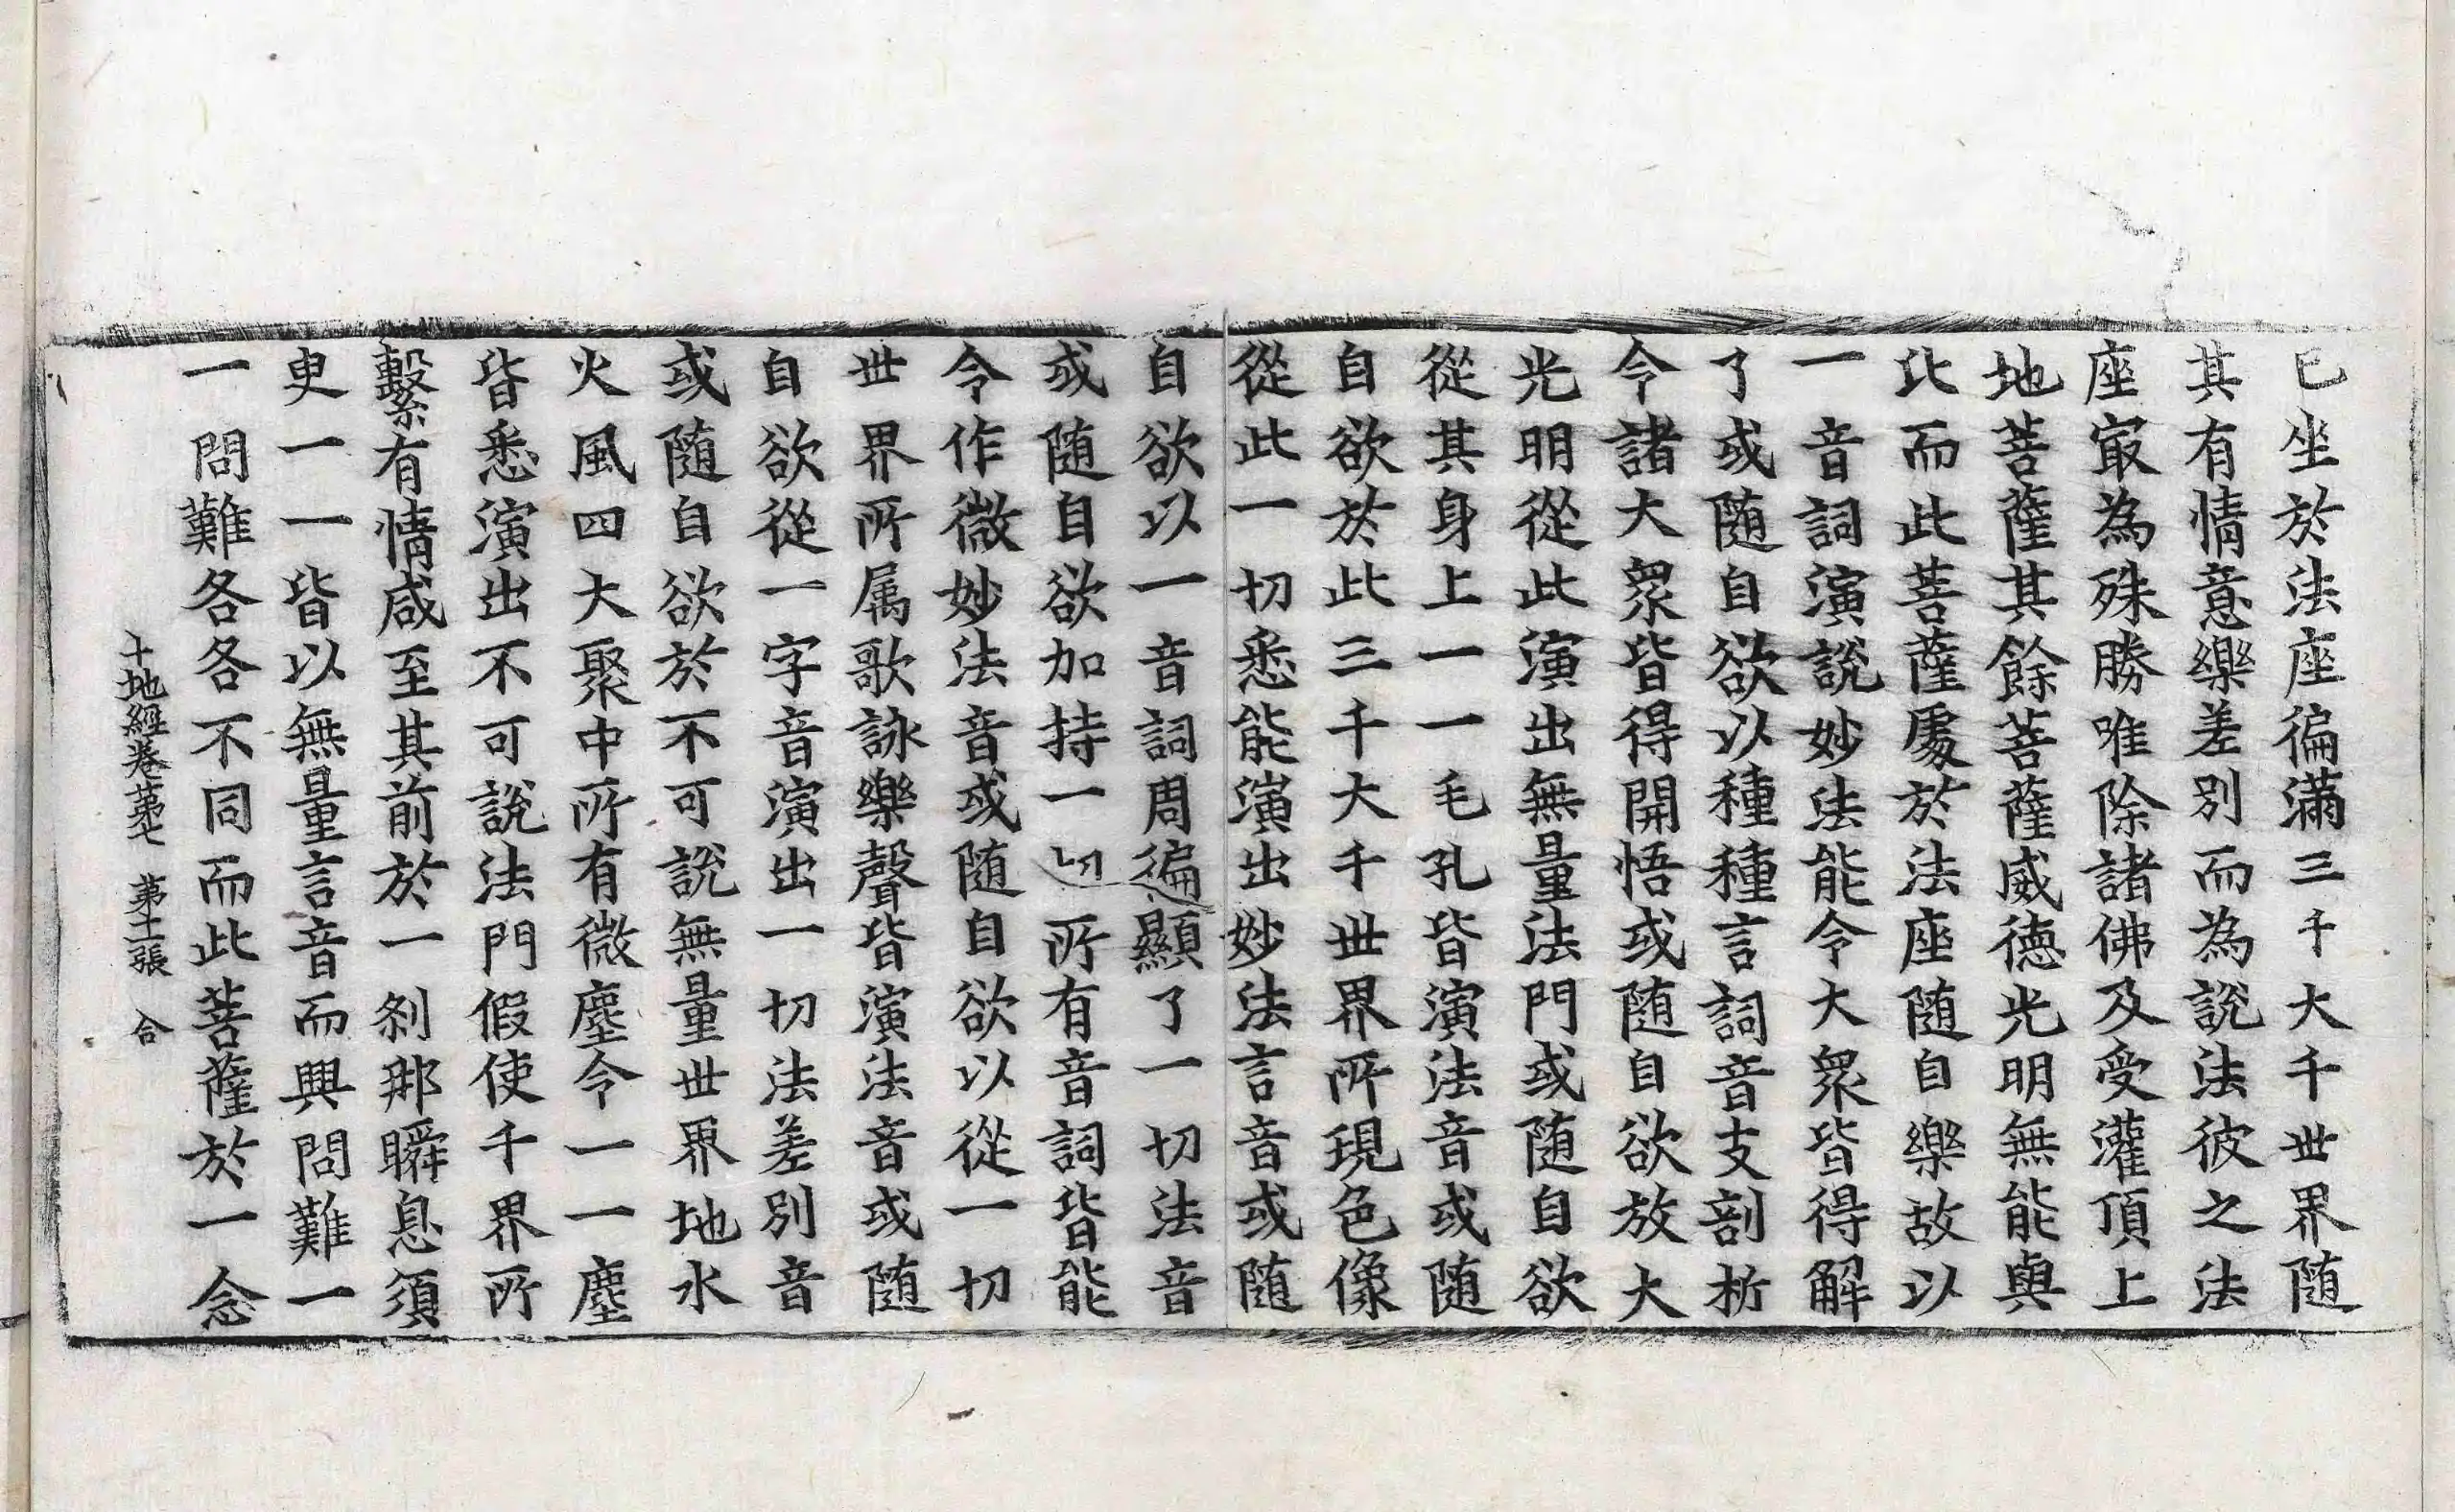 已坐於法座徧滿三千大千世界隨
其有情意樂差別而為說法彼之法
座㝡為殊勝唯除諸佛及受灌頂上
地菩薩其餘菩薩威德光明無能與
比而此菩薩處於法座随自樂故以
一音詞演說妙法能令大衆皆得解
了或随自欲以種種言詞音支剖析
令諸大衆皆得開悟或随自欲放大
光明從此演出無量法門或随自欲
從其身上一一毛孔皆演法音或随
自欲於此三千大千世界所現色像
從此一切悉能演出妙法言音或随
自欲以一音詞周徧顯了一切法音
或随自欲加持一切所有音詞皆能
令作微妙法音或随自欲以從一切
世界所属歌詠樂聲皆演法音或随
自欲從一字音演出一切法差別音
或随自欲於不可說無量世界地水
火風四大聚中所有微塵令一一塵
皆悉演出不可說法門假使千界所
繫有情咸至其前於一剎那瞬息須
更一一皆以無量言音而興問難一
一問難各各不同而此菩薩於一念
十地經卷苐七 苐十一張 合